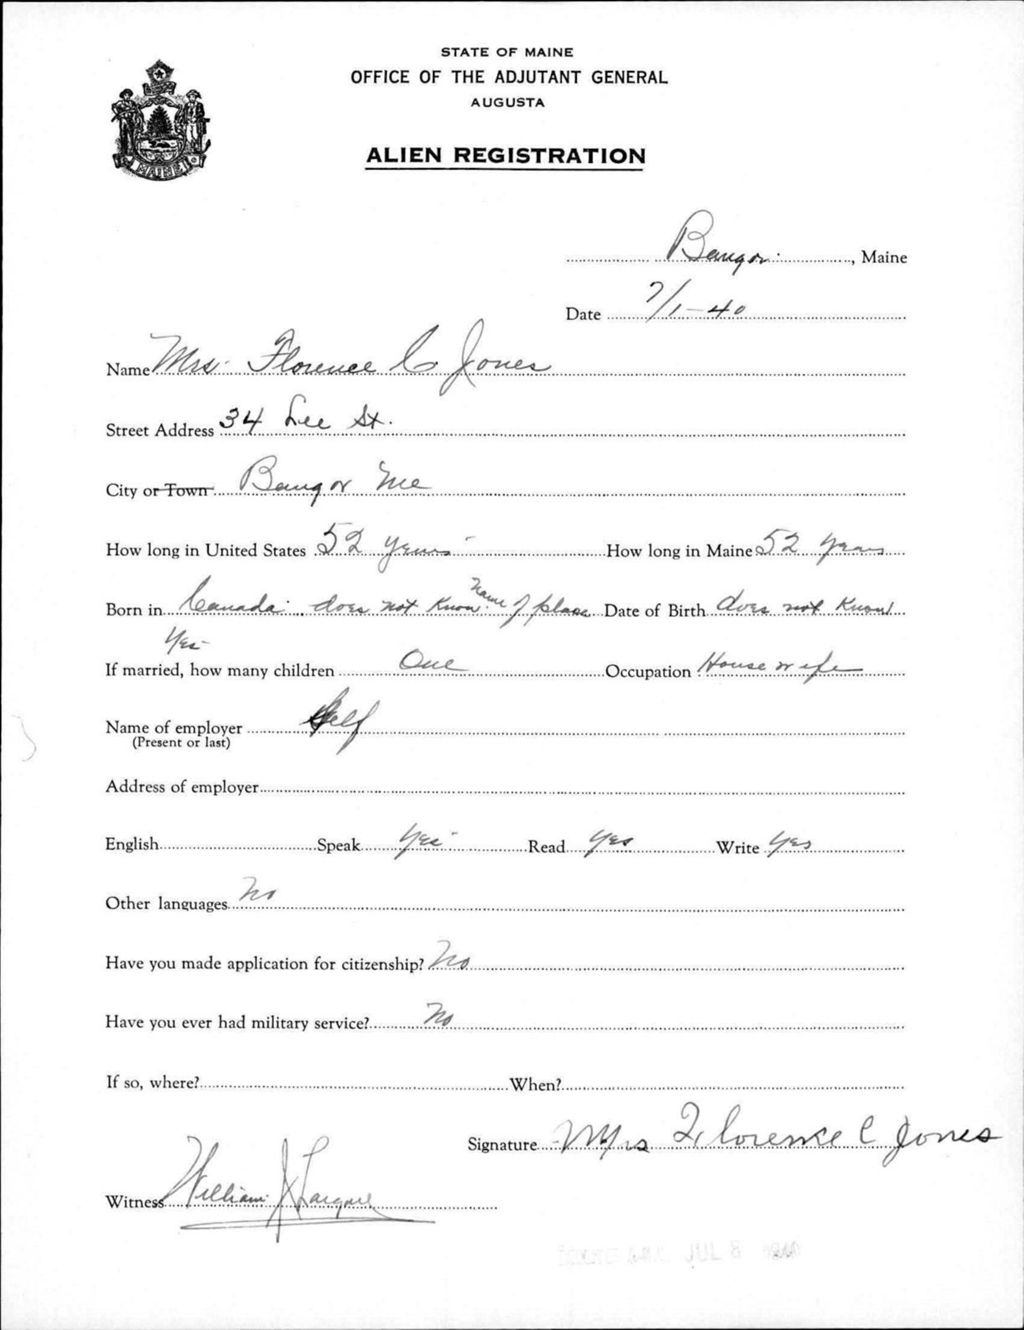 STATE OF MAINE
OFFICE OF THE ADJUTANT GENERAL
AUGUSTA
ALIEN REGISTRATION
MAINE
Bangor, Maine
Date 7/1-40
Name Mrs. Florence C Jones
Street Address 34 Lee St.
City or Town Bangor Me
How long in United States 52 years How long in Maine 52 years
Born in Canada. does not know Name of place Date of Birth does not know
Yes
If married, how many children One Occupation House wife
Name of employer Self
(Present or last)
Address of employer
English Speak Yes Read Yes Write Yes
Other languages No
Have you made application for citizenship? No
Have you ever had military service? No
If so, where? When?
Signature Mrs Florence C Jones
Witness William J
JUL 8 1940